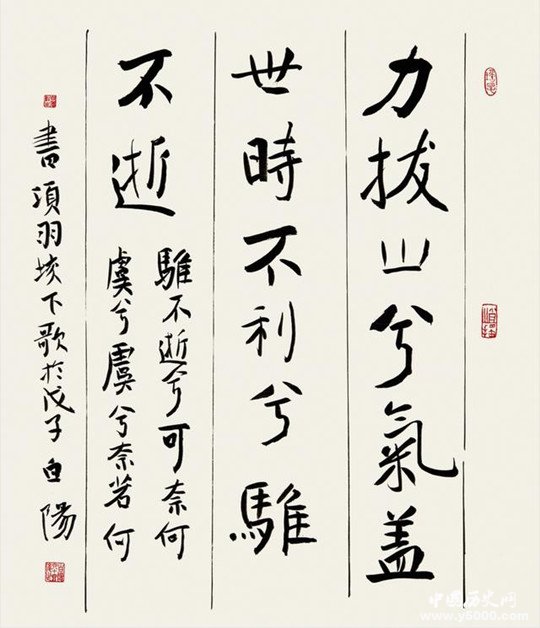 力拔山兮氣盖
世時不利兮騅
不逝
騅不逝兮可奈何
虞兮虞兮奈若何
書項羽垓下歌於戊子 白陽
中国历史网
www.y5000.com